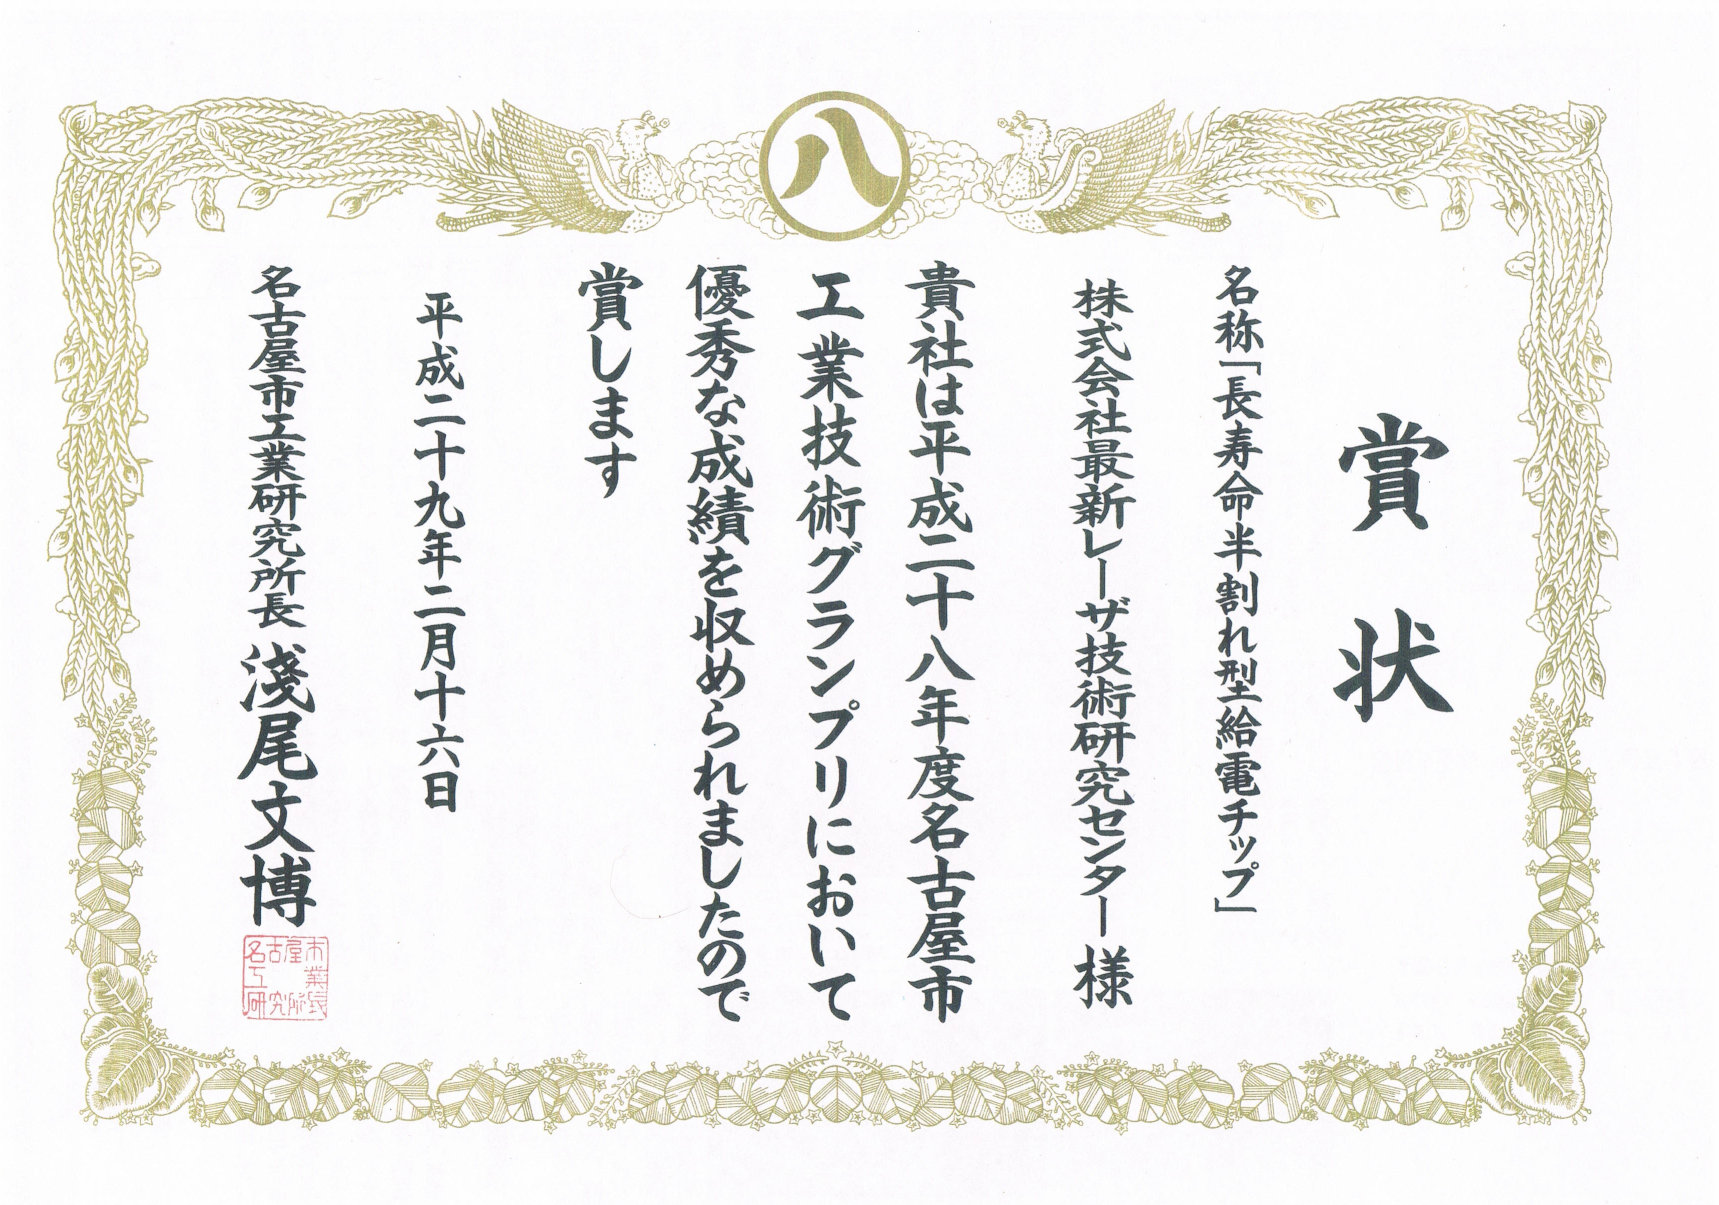 八
賞状
名称「長寿命半割れ型給電チップ」
株式会社最新レーザ技術研究センター様
貴社は平成二十八年度名古屋市
工業技術グランプリにおいて
優秀な成績を収められましたので
賞します
平成二十九年二月十六日
名古屋市工業研究所長 淺尾文博
名古屋市
工業
研究所長